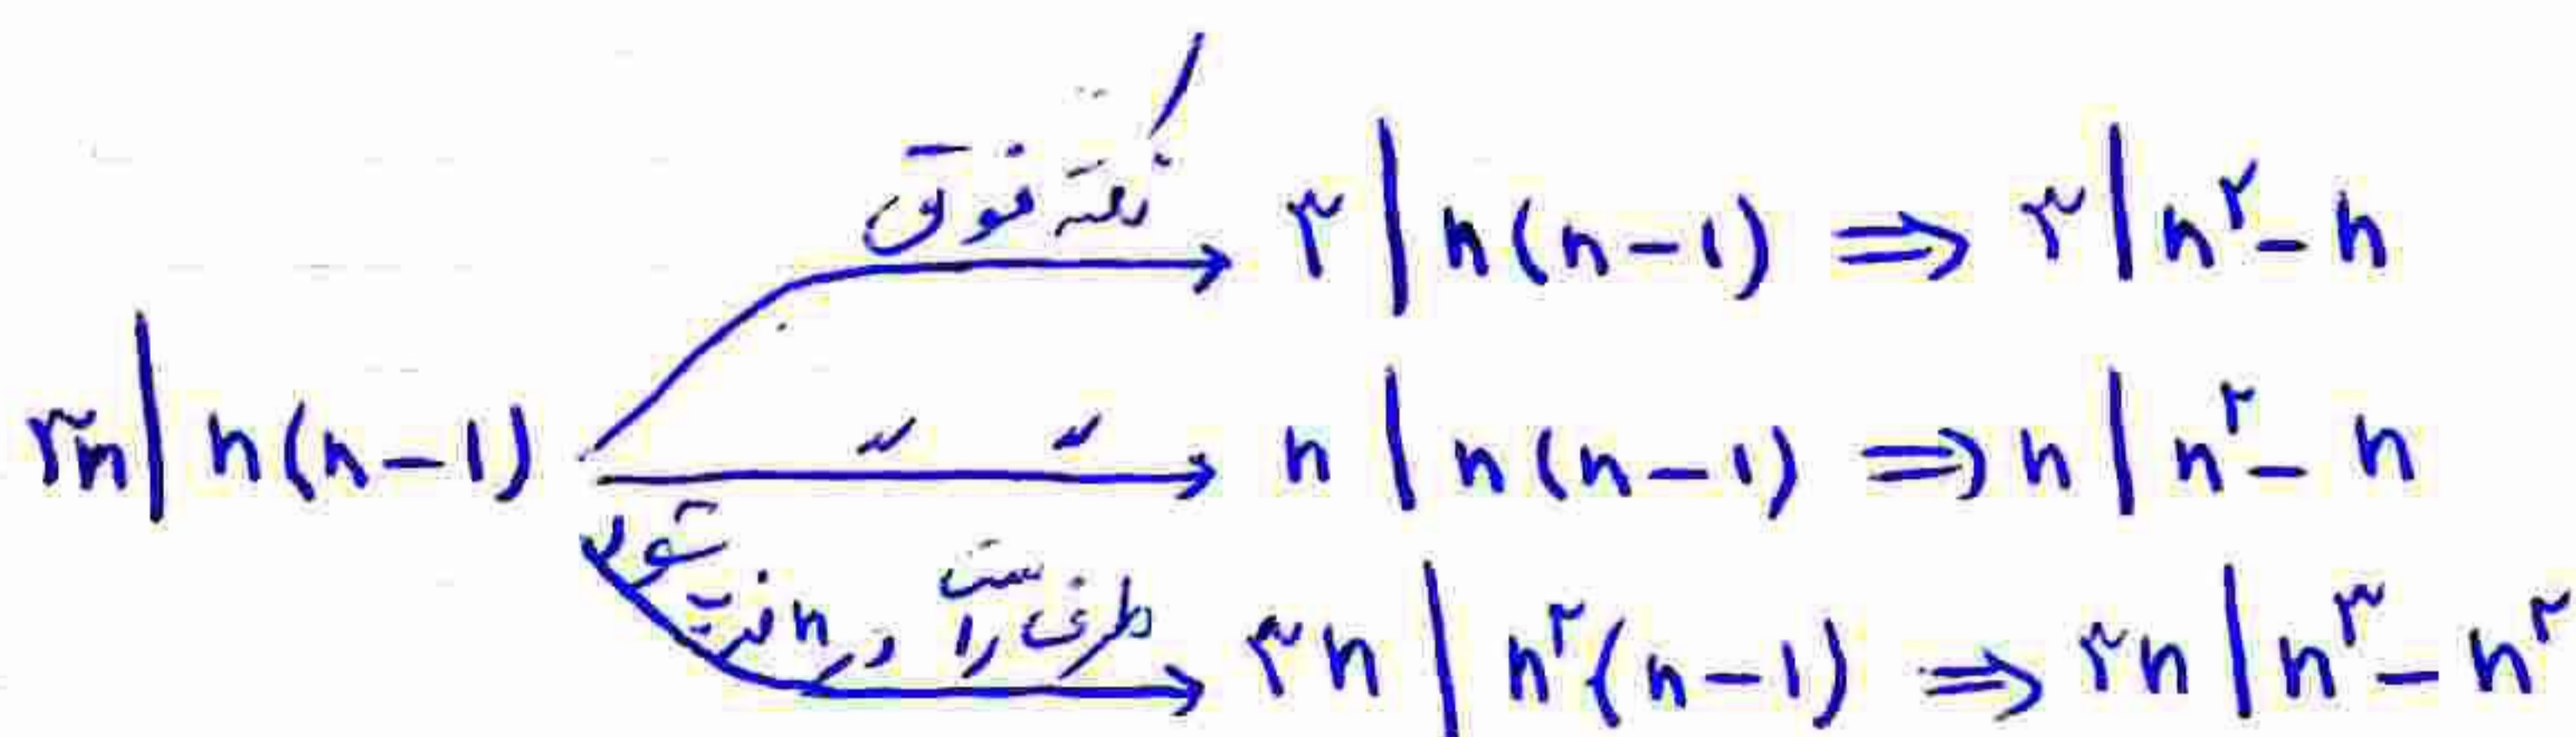 نکته فوق
۳ | n(n-1) ⇒ ۳ | n^۲ - n
۳n | n(n-1) 〃 〃 n | n(n-1) ⇒ n | n^۲ - n
طرف راست را در n ضرب شود
۳n | n^۲(n-1) ⇒ ۳n | n^۳ - n^۲